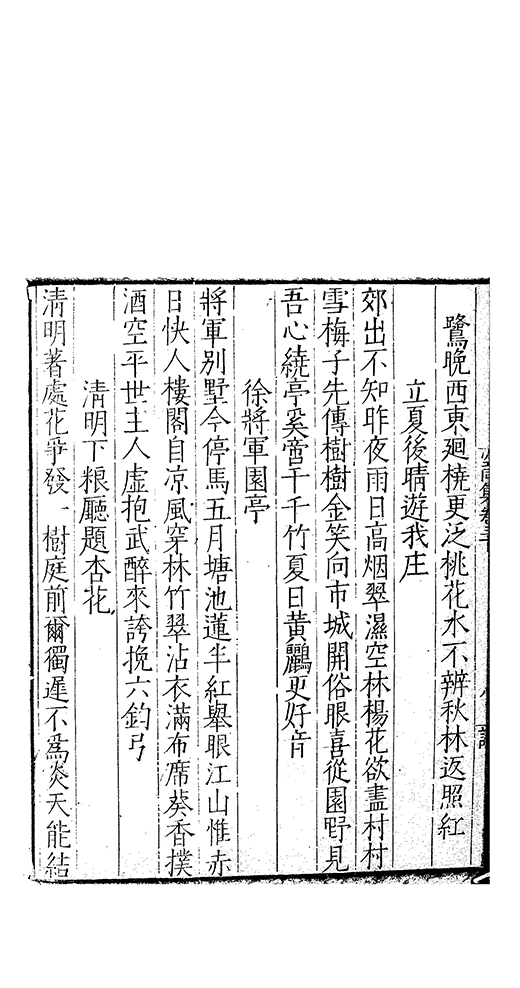 鷺晚西東廻橈更泛桃花水不辨秋林返照紅
立夏後晴遊我庄
郊出不知昨夜雨日高烟翠濕空林楊花欲盡村村
雪梅子先傳樹樹金笑向市城開俗眼喜從園野見
吾心繞亭奚啻千千竹夏日黃鸝更好音
徐將軍園亭
將軍别墅今停馬五月塘池蓮半紅舉眼江山惟赤
日快人樓閣自凉風穿林竹翠沾衣滿布席葵香撲
酒空平世主人虛抱武醉來誇挽六鈞弓
清明下粮廳題杏花
清明著處花爭發一樹庭前爾獨遲不爲炎天能結